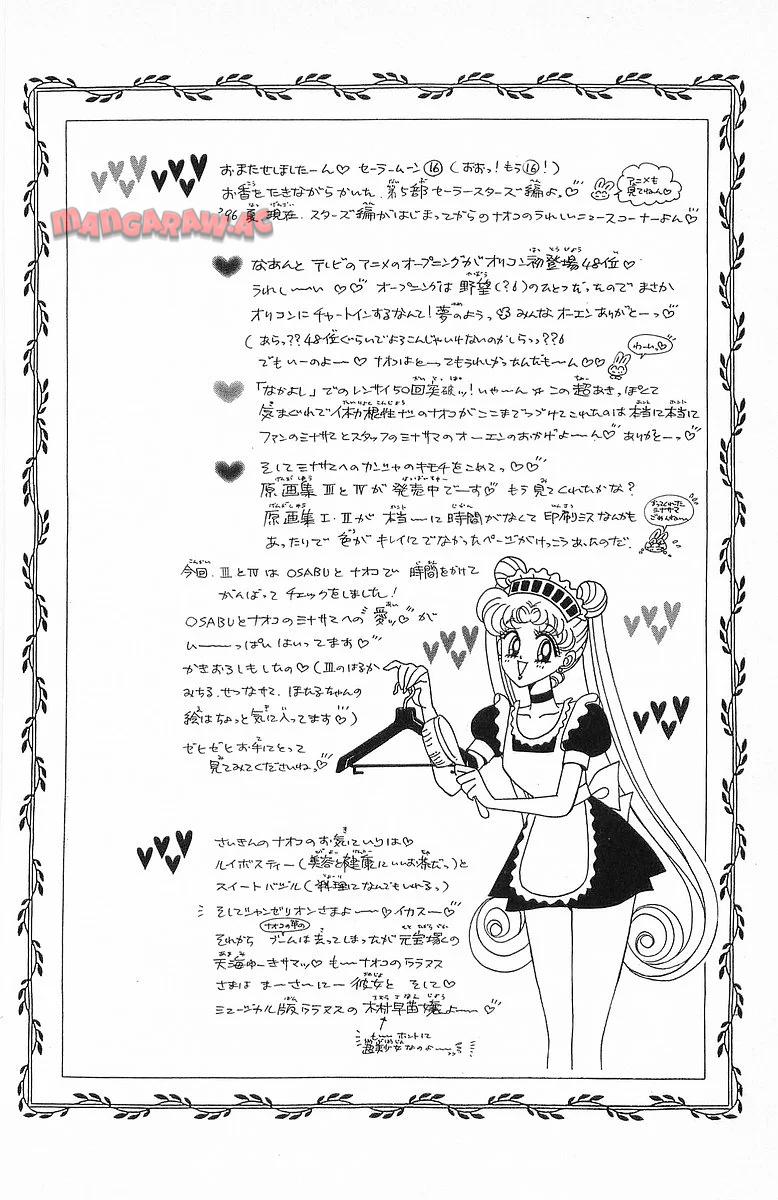 おまたせしましたーん♡ セーラームーン⑯(おおっ!もう⑯!)
アニメも
見てねん♡
お香をたきながらかいた、第5部セーラースターズ編よ。♡
'96夏現在、スターズ編がはじまってからのナオコのうれしいニュースコーナーよん♡
MANGARAW.AC
なあんと テレビのアニメのオープニングがオリコン初登場48位♡
うれしーーい ♡♡ オープニングは 野望(?)のひとつだったので まさか
オリコンに チャートインするなんて!夢のようっ みんな オーエン ありがとーっ♡
(あらっ??48位ぐらいでよろこんじゃいけないのかしらっ??
わーい♡
でもいーのよー〜 ナオコはとーってもうれしかったんだも〜ん♡♡
「なかよし」でのレンサイ50回突破ッ!いや〜ん この超あきっぽくて
気まぐれで体力根性ナシのナオコがここまでつづけてこれたのは本当に本当に
ファンのミナサマとスタッフのミナサマのオーエンのおかげよ〜ん♡ ありがとーっ♡
そしてミナサマへのカンシャのキモチをこめてっ♡♡
原画集ⅢとⅣが発売中でーす♡ もう見てくれたかな?
原画集Ⅰ・Ⅱが本当ーに時間がなくて印刷ミスなんかも
おってくれた
ミナサマ
ごめんね〜
あったりで 色がキレイにでなかったページがけっこうあったのだ。
今回、ⅢとⅣは OSABUとナオコで 時間をかけて
がんばって チェックをしました!
OSABUとナオコのミナサマへの"愛ッ♡"が
い〜〜っぱいはいってます♡
かきおろしもしたの♡(Ⅲのはるか
みちる、せつなサマ、ほたるちゃんの
絵はちょっと気に入ってます♡)
ゼヒゼヒお手にとって
見てみてくださいねっ♡
さいきんのナオコのお気にいりは♡
ルイボスティー(美容と健康にいいお茶だっ)と
スイートバジル(料理になんでもいれるっ)
そしてシャンゼリオンさまよ〜〜♡イカス〜♡
ナオコの中の
それから ブームは去ってしまったが元宝塚の
天海ゆーきサマッ♡ も〜ナオコのララァス
さまは まーさーにー 彼女と そして♡
ミュージカル版ララァスの木村早苗嬢よ〜〜♡
も〜〜ホントに
超美少女なのよ〜〜